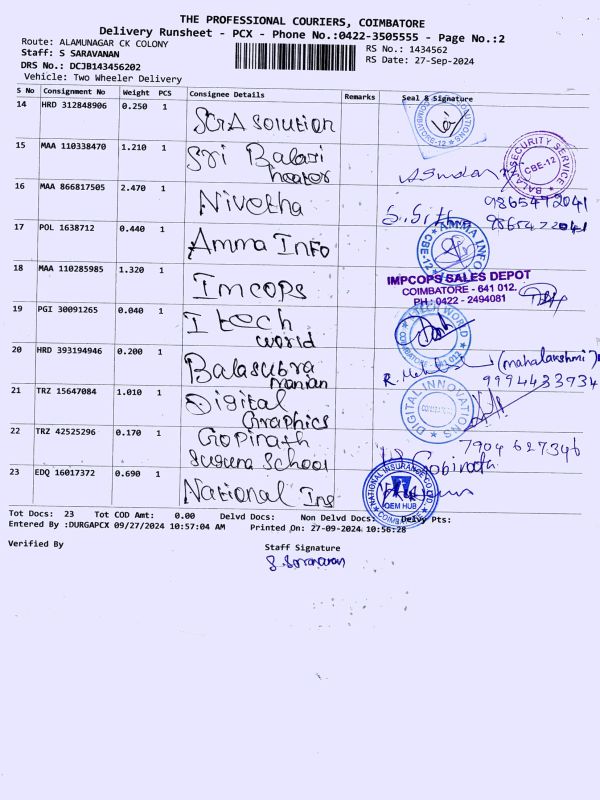 THE PROFESSIONAL COURIERS, COIMBATORE
Delivery Runsheet - PCX - Phone No.:0422-3505555 - Page No.:2
Route: ALAMUNAGAR CK COLONY
Staff: S SARAVANAN
DRS No.: DCJB143456202
Vehicle: Two Wheeler Delivery
RS No.: 1434562
RS Date: 27-Sep-2024
S No Consignment No Weight PCS Consignee Details Remarks Seal & Signature
14 HRD 312848906 0.250 1 SGA Solution
15 MAA 110338470 1.210 1 Sri Balaji heater
BALAJI SECURITY SERVICE CBE-12
16 MAA 866817505 2.470 1 Nivetha
9865472041
9865472041
17 POL 1638712 0.440 1 Amma Info
AMMA INFO CBE-12
18 MAA 110285985 1.320 1 Imcops
IMPCOPS SALES DEPOT
COIMBATORE - 641 012.
PH : 0422 - 2494081
19 PGI 30091265 0.040 1 I tech world
I TECH WORLD COIMBATORE - 641 012
20 HRD 393194946 0.200 1 Balasubramanian
(mahalakshmi)
9994433934
21 TRZ 15647084 1.010 1 Digital Graphics
DIGITAL INNOVATIONS
22 TRZ 42525296 0.170 1 Gopinath Suguna School
7904 627346
23 EDQ 16017372 0.690 1 National Ins
NATIONAL INSURANCE CO LTD OEM HUB COIMBATORE
Tot Docs: 23 Tot COD Amt: 0.00 Delvd Docs: Non Delvd Docs: Delvy Pts:
Entered By :DURGAPCX 09/27/2024 10:57:04 AM Printed On: 27-09-2024 10:56:28
Verified By
Staff Signature
S. Saravanan